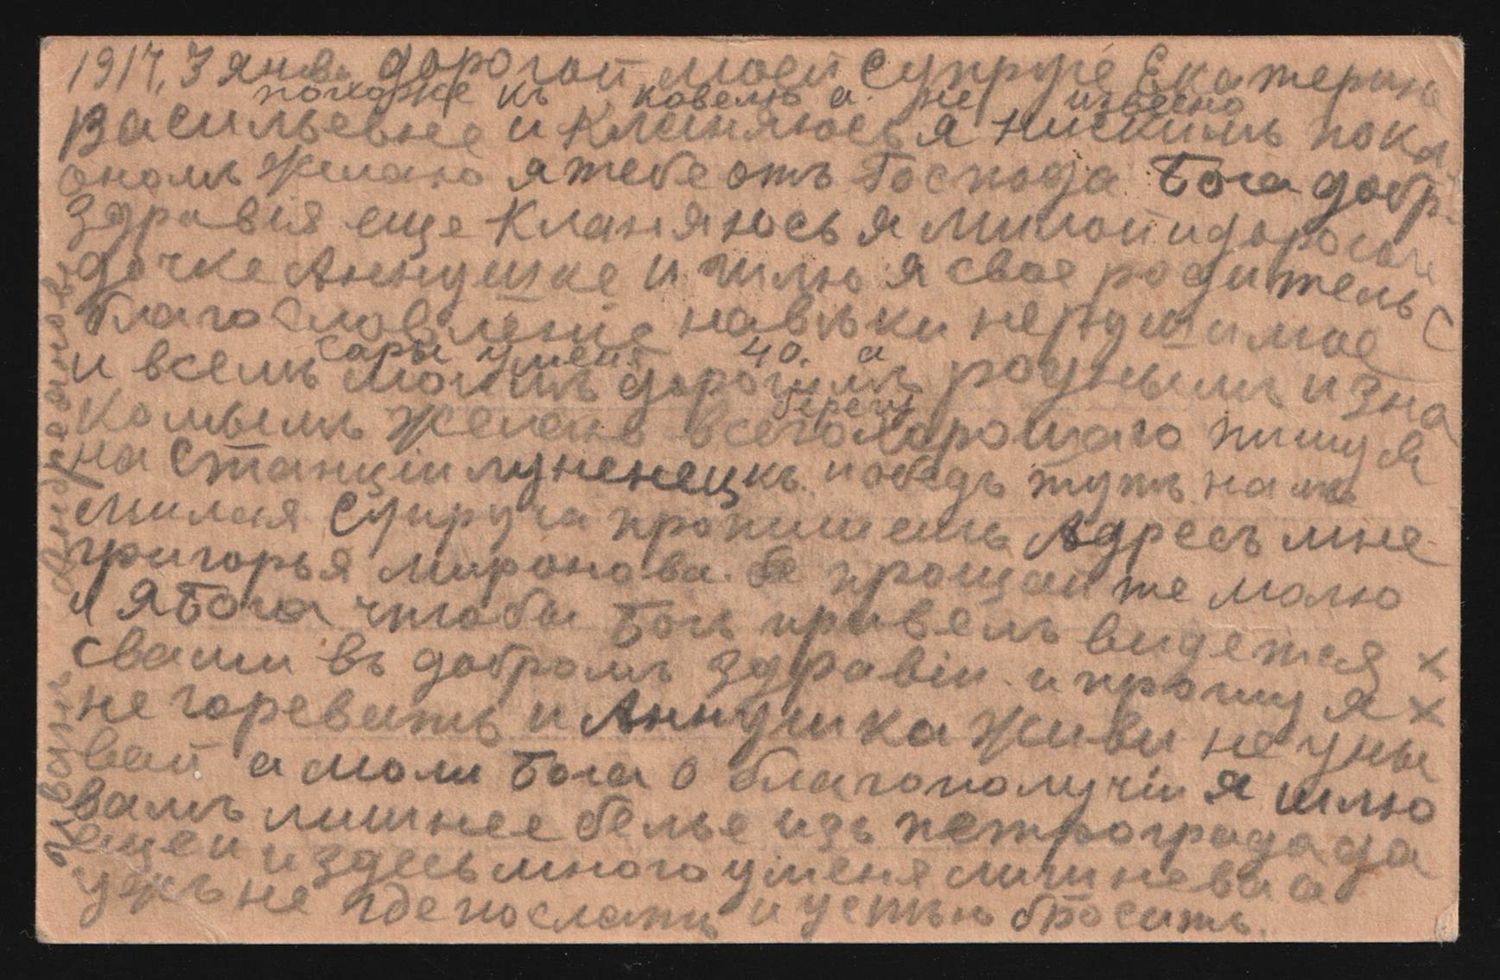 1917, 3 янв. дорогой моей супруге Екатерине
похоже къ ковелю а. не извесно
Васильевне и кланяюсь я нискимъ покл
ономъ Желаю я тебе отъ Господа Бога добр.
Здравія еще Кланяюсь я милой и дорогой
дочке Аннушке и шлю я свое родительс
благословленіе навѣки нерушимое
сары у меня 40. а
и всемъ моимъ дорогимъ родным и зна
берегу
комымъ Желаю всего хорошаго пишу я
на Станціи луненецкъ. и обедъ тутъ намъ
милая Супруга пропишешь Адресъ мне
григорья миронова. прощай же молю
я Бога чтобы Богъ привелъ видетдя
сваши въ добромъ здравіи. и прошу я
не горевать и Аннушка Живи не уны
вай а моли Бога о благополучіи я шлю
вамъ лишнее белье изъ петрограда да
еще и здесь много у меня лишнева а
ужъ не где послать и бросить.